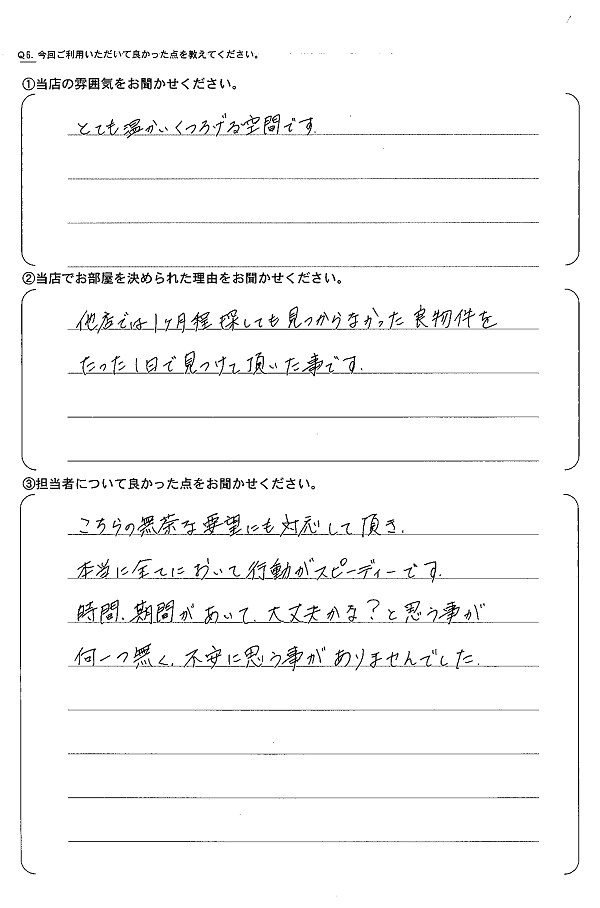 Q6. 今回ご利用いただいて良かった点を教えてください。
①当店の雰囲気をお聞かせください。
とても温かいくつろげる空間です.
②当店でお部屋を決められた理由をお聞かせください。
他店では1ヶ月程探しても見つからなかった良物件を
たった1日で見つけて頂いた事です.
③担当者について良かった点をお聞かせください。
こちらの無茶な要望にも対応して頂き.
本当に全てにおいて行動がスピーディーです.
時間.期間があいて.大丈夫かな?と思う事が
何一つ無く.不安に思う事がありませんでした.